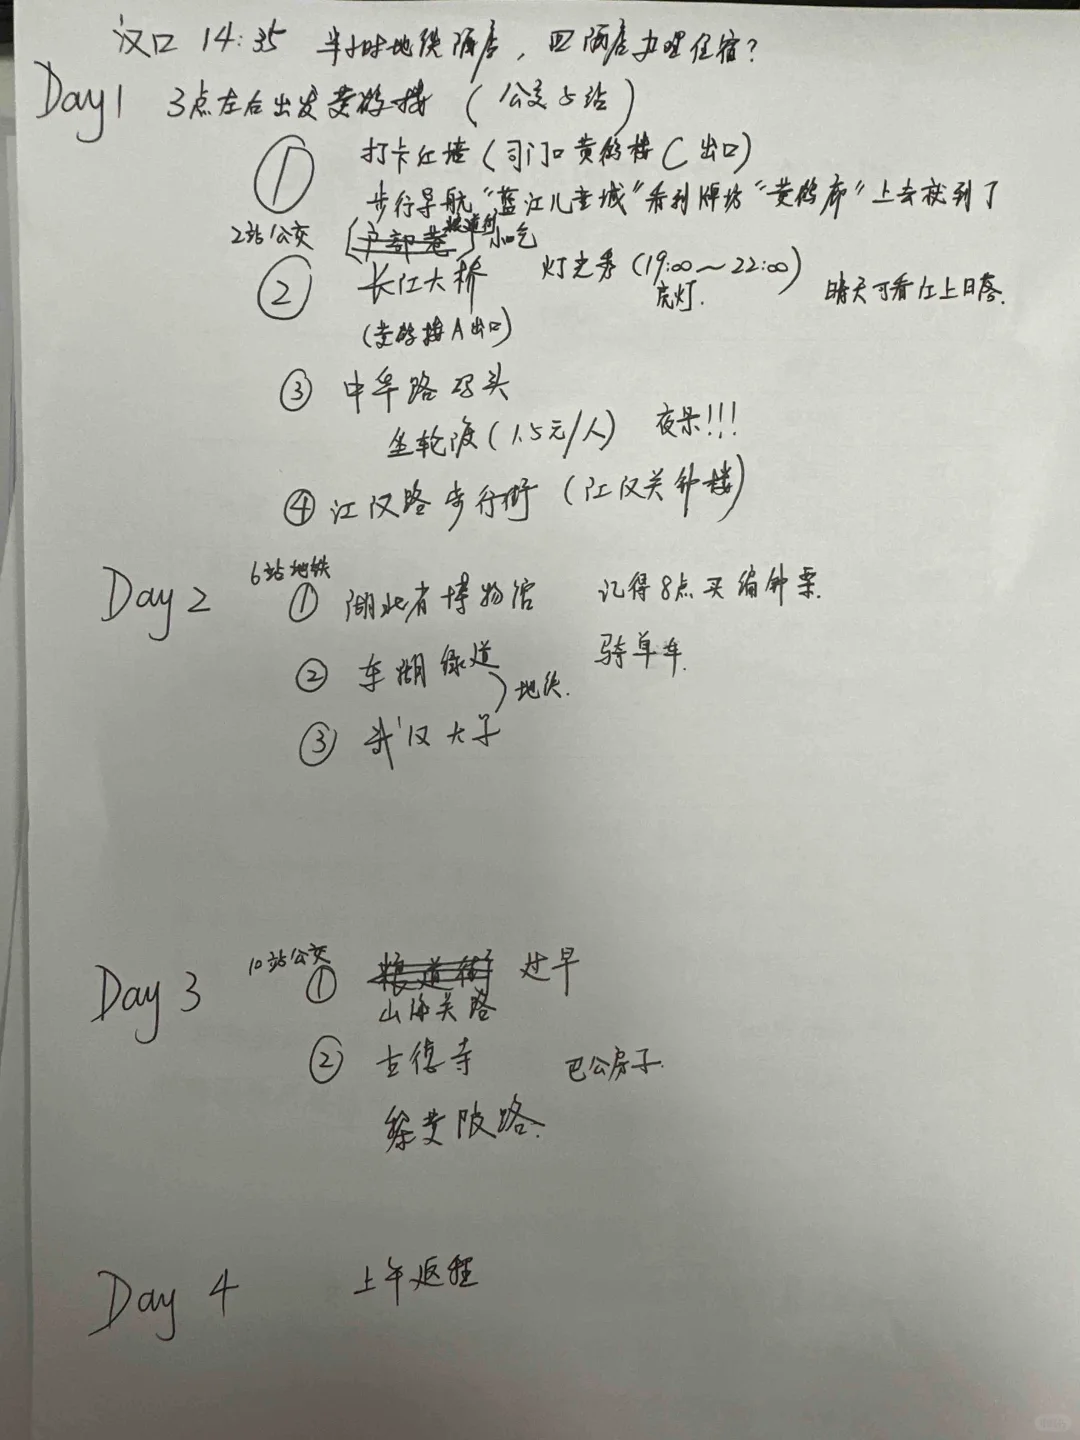 汉口 14:35 半小时地铁酒店，回酒店办理住宿？
Day1 3点左右出发黄鹤楼（公交5站）
① 打卡红墙（司门口黄鹤楼C出口）
步行导航“蓝江儿童城”看到牌坊“黄鹤廊”上去就到了
2站公交 [户部巷 粮道街] 小吃
② 长江大桥 灯光秀（19:00～22:00） 晴天可看江上日落.
亮灯.
（黄鹤楼A出口）
③ 中华路码头
坐轮渡（1.5元/人） 夜景!!!
④ 江汉路步行街（江汉关钟楼）
Day 2 6站地铁
① 湖北省博物馆 记得8点买编钟票.
② 东湖绿道 骑单车.
地铁.
③ 武汉大学
Day 3 10站公交
① 粮道街 过早
山海关路
② 古德寺 巴公房子.
黎黄陂路.
Day 4 上午返程